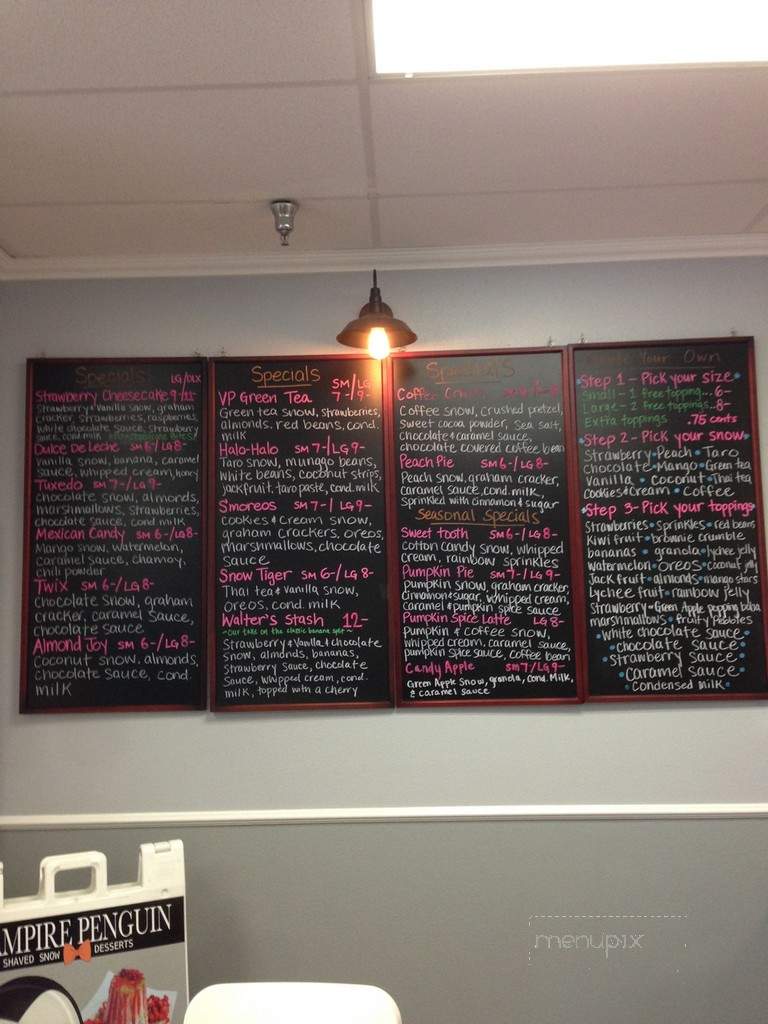 Specials LG/DLX
Strawberry Cheesecake 9-/11-
Strawberry & Vanilla snow, graham
cracker, strawberries, raspberries,
white chocolate sauce, strawberry
sauce, cond. milk
Dulce De Leche SM 6-/LG 8-
vanilla snow, banana, caramel
sauce, whipped cream, honey
Tuxedo SM 7-/LG 9-
chocolate snow, almonds,
marshmallows, strawberries,
chocolate sauce, cond milk
Mexican Candy SM 6-/LG 8-
Mango snow, watermelon,
caramel sauce, chamoy,
chili powder
Twix SM 6-/LG 8-
chocolate snow, graham
cracker, caramel sauce,
chocolate sauce
Almond Joy SM 6-/LG 8-
Coconut snow, almonds,
chocolate sauce, cond.
milk
Specials SM/LG
VP Green Tea 7-/9-
Green tea snow, strawberries,
almonds, red beans, cond.
milk
Halo-Halo SM 7-/LG 9-
Taro snow, munggo beans,
white beans, coconut strips,
jackfruit, taro paste, cond. milk
Smoreos SM 7-/LG 9-
cookies & cream snow,
graham crackers, oreos,
marshmallows, chocolate
sauce
Snow Tiger SM 6-/LG 8-
Thai tea & vanilla snow,
oreos, cond. milk
Walter's Stash 12-
-Our take on the classic banana split-
Strawberry & Vanilla & chocolate
snow, almonds, bananas,
Strawberry sauce, chocolate
sauce, whipped cream, cond.
milk, topped with a cherry
Specials
Coffee
Coffee snow, crushed pretzel,
sweet cocoa powder, sea salt,
chocolate & caramel sauce,
chocolate covered coffee bean
Peach Pie SM 6-/LG 8-
Peach snow, graham cracker,
caramel sauce, cond. milk,
sprinkled with cinnamon & sugar
Seasonal Specials
Sweet tooth SM 6-/LG 8-
cotton candy snow, whipped
cream, rainbow sprinkles
Pumpkin Pie SM 7-/LG 9-
pumpkin snow, graham cracker,
Cinnamon & sugar, whipped cream,
caramel & pumpkin spice sauce
Pumpkin Spice Latte LG 8-
pumpkin & coffee snow,
whipped cream, caramel sauce,
pumpkin spice sauce, coffee bean
Candy Apple SM 7-/LG 9-
Green Apple Snow, granola, cond. Milk,
& caramel sauce
Your Own
Step 1 - Pick your size
Small - 1 Free topping... 6-
Large - 2 Free toppings..8-
Extra toppings .75 cents
Step 2 - Pick your snow
Strawberry • Peach • Taro
Chocolate • Mango • Green tea
Vanilla • coconut • Thai tea
cookies & Cream • Coffee
Step 3 - Pick your toppings
Strawberries • sprinkles • red beans
Kiwi fruit • brownie crumble
bananas • granola • lychee jelly
watermelon • oreos • coconut jelly
Jack fruit • almonds • mango stars
Lychee fruit • rainbow jelly
Strawberry • Green Apple popping boba
marshmallows • fruity pebbles
• white chocolate sauce •
• chocolate sauce •
• strawberry sauce •
• caramel sauce •
• condensed milk •
MPIRE PENGUIN
SHAVED SNOW DESSERTS
menupix